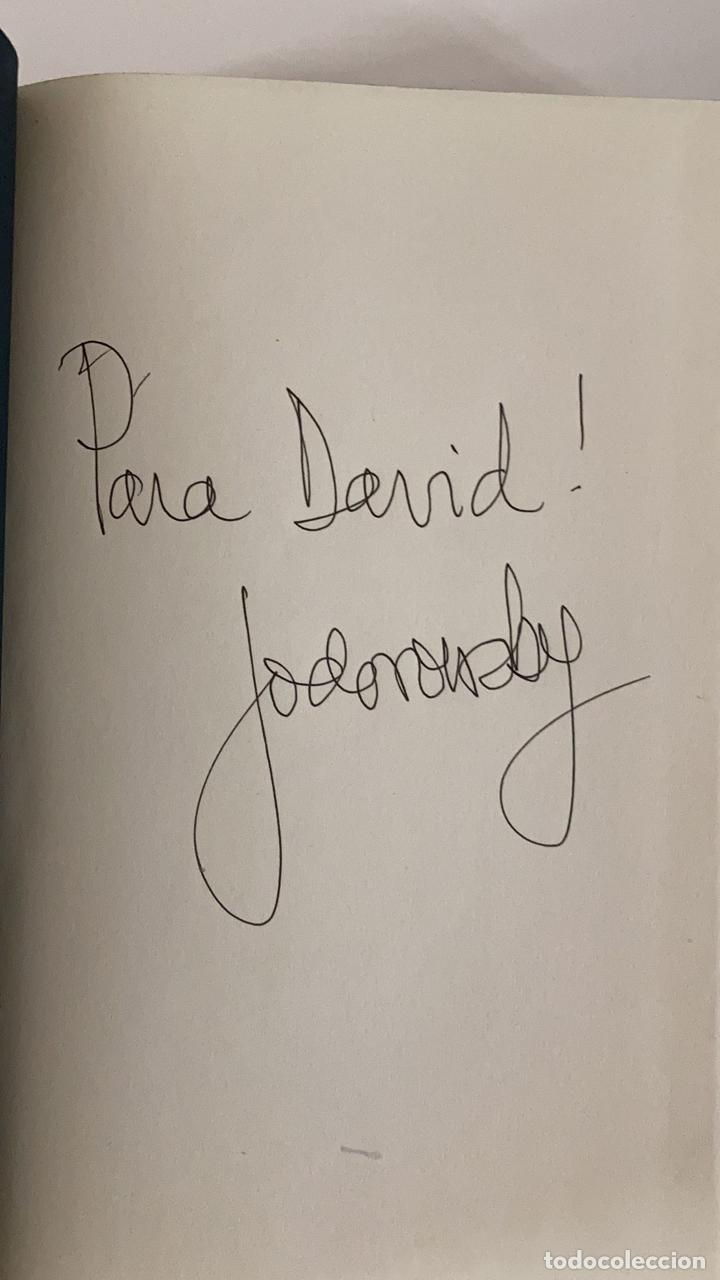 Para David!
Jodorowsky
todocoleccion